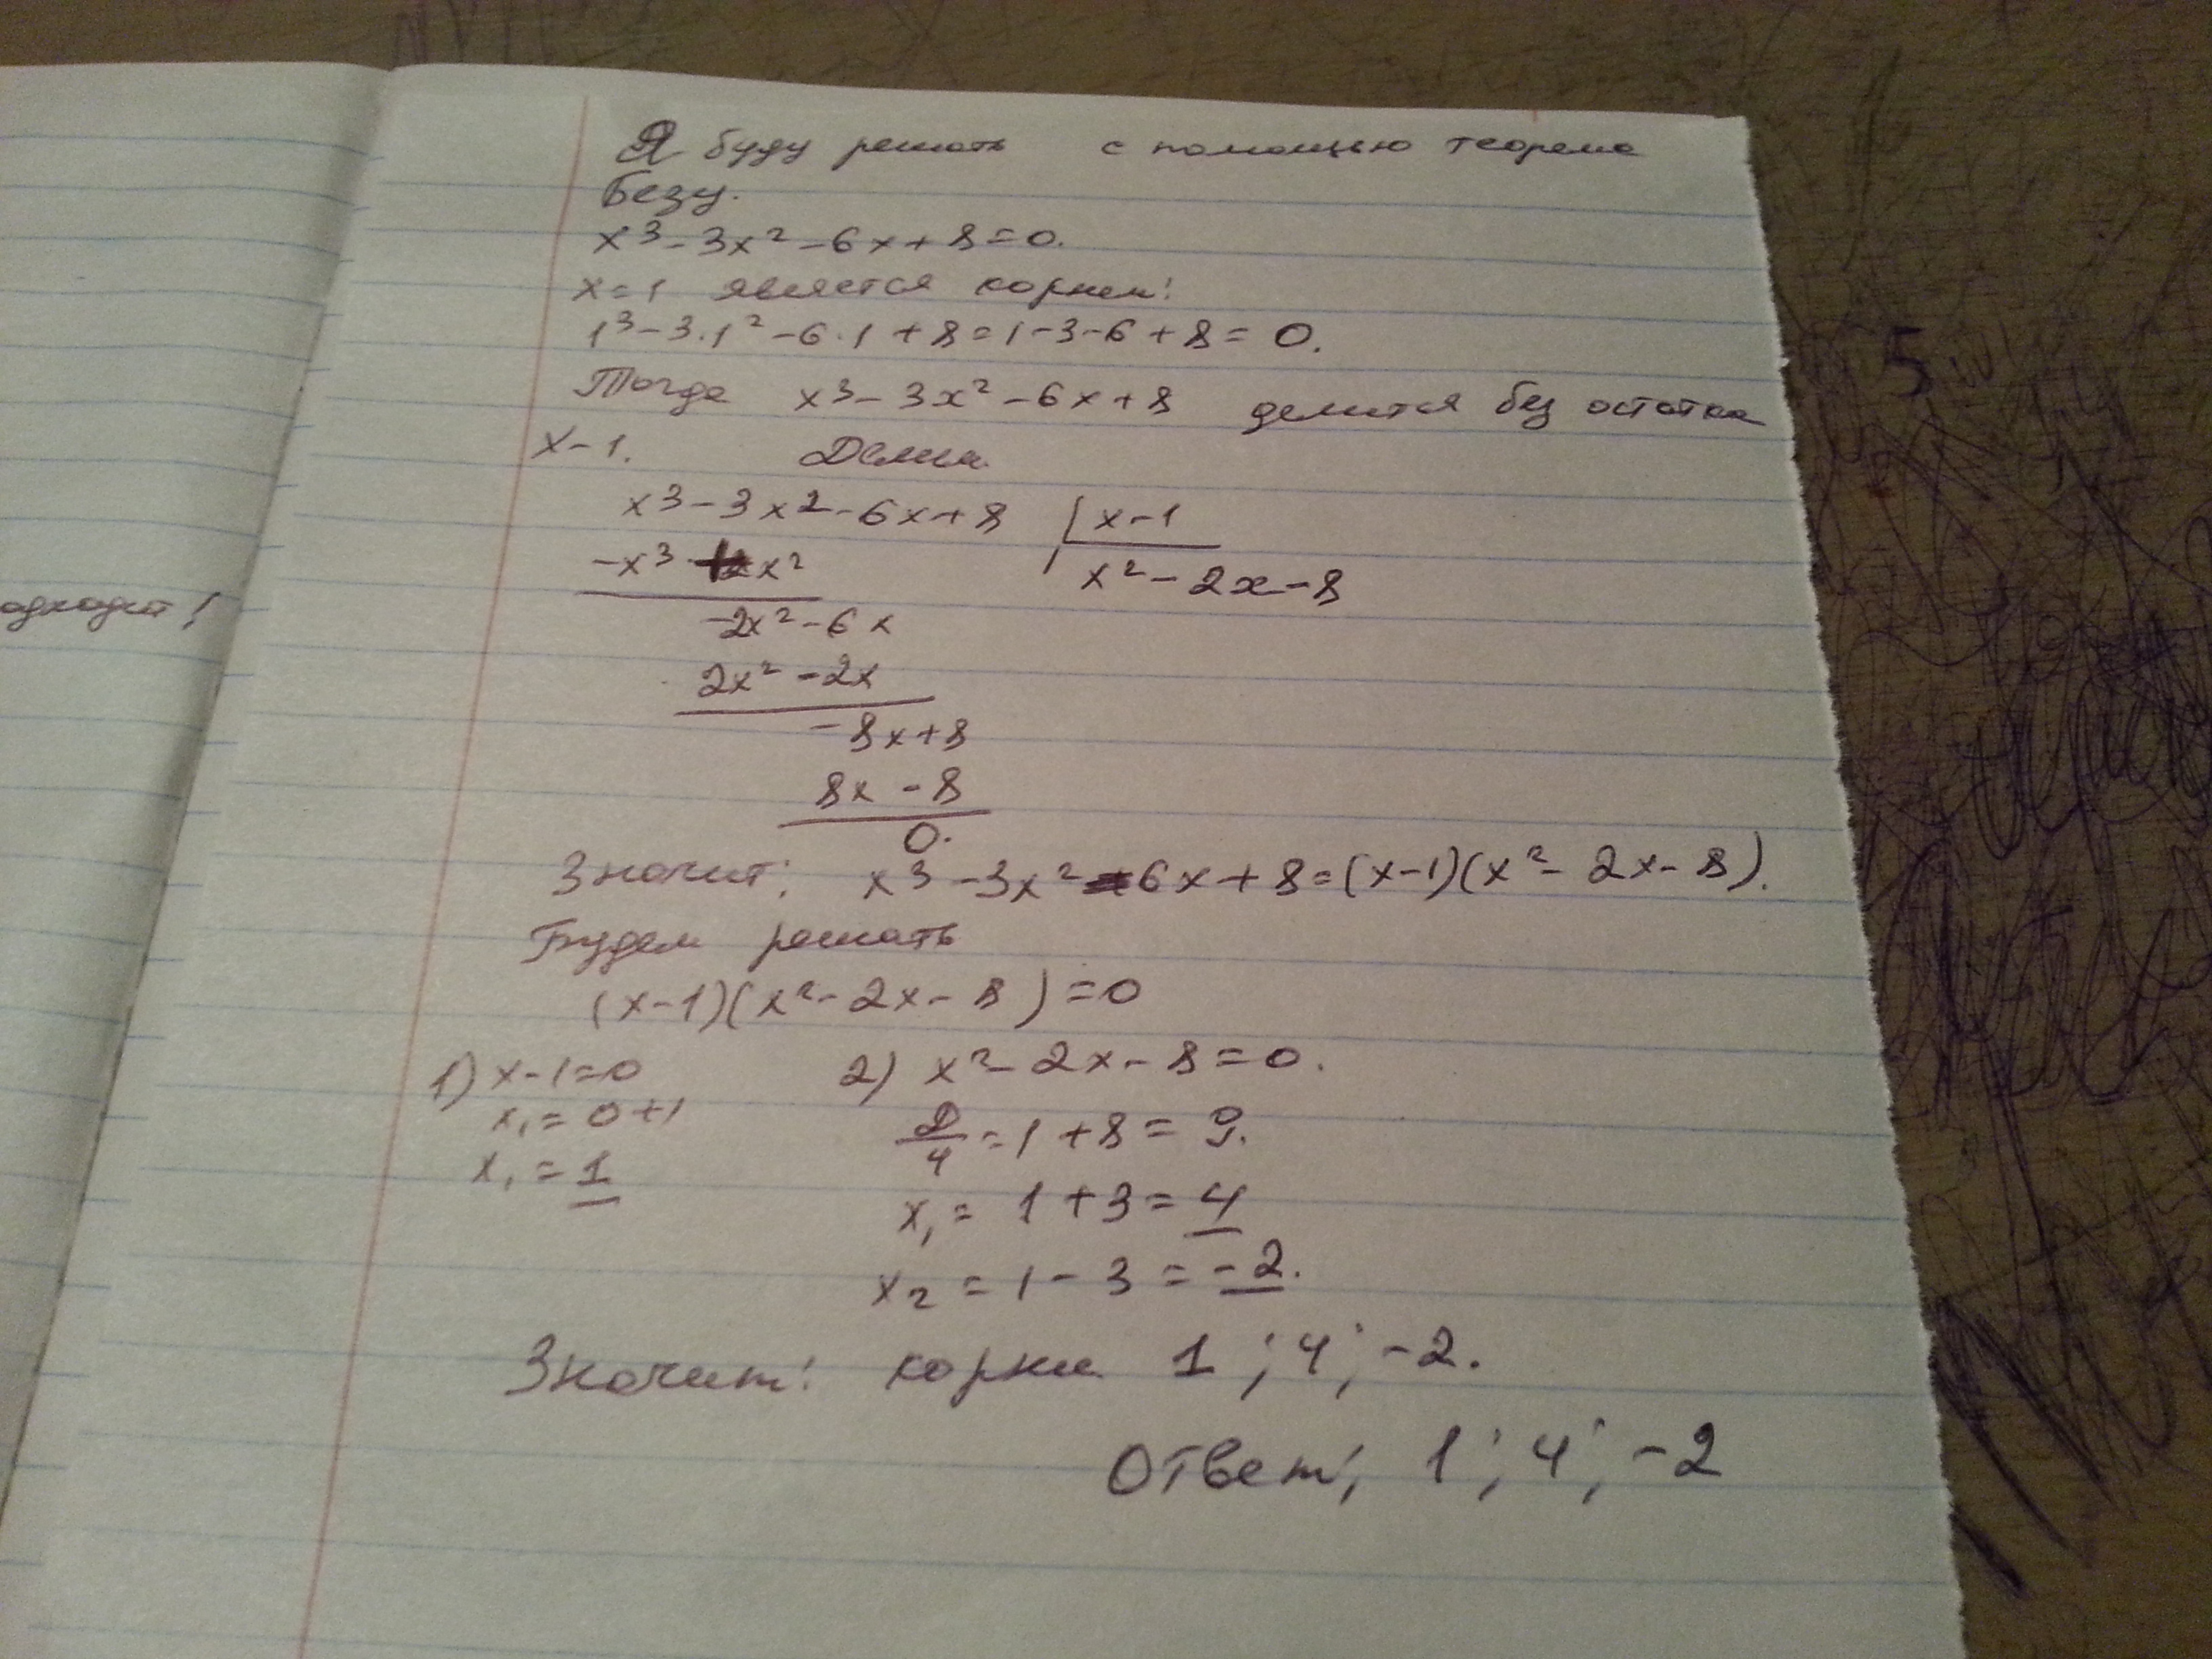 Я буду решать с помощью теорема
Безу.
x³-3x²-6x+8=0.
x=1 является корнем:
1³-3·1²-6·1+8=1-3-6+8=0.
Тогда x³-3x²-6x+8 делится без остатка
x-1. Делим
x³-3x²-6x+8 | x-1
-x³+x² x²-2x-8
-2x²-6x
2x²-2x
-8x+8
8x-8
0.
Значит: x³-3x²-6x+8=(x-1)(x²-2x-8).
Будем решать
(x-1)(x²-2x-8)=0
1) x-1=0 2) x²-2x-8=0.
x₁=0+1 D/4=1+8=9.
x₁=1 x₁=1+3=4
x₂=1-3=-2.
Значит: корни 1; 4; -2.
Ответ: 1; 4; -2
5